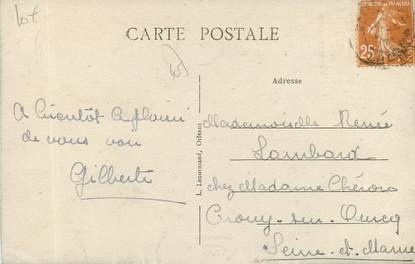 lot
CARTE POSTALE
Adresse
A bientôt le plaisir
de vous voir
Gilberte
L. Lenormand, Orléans
Mademoiselle Renée
Lombard
chez Madame
Crouy-sur-Ourcq
Seine-et-Marne
25